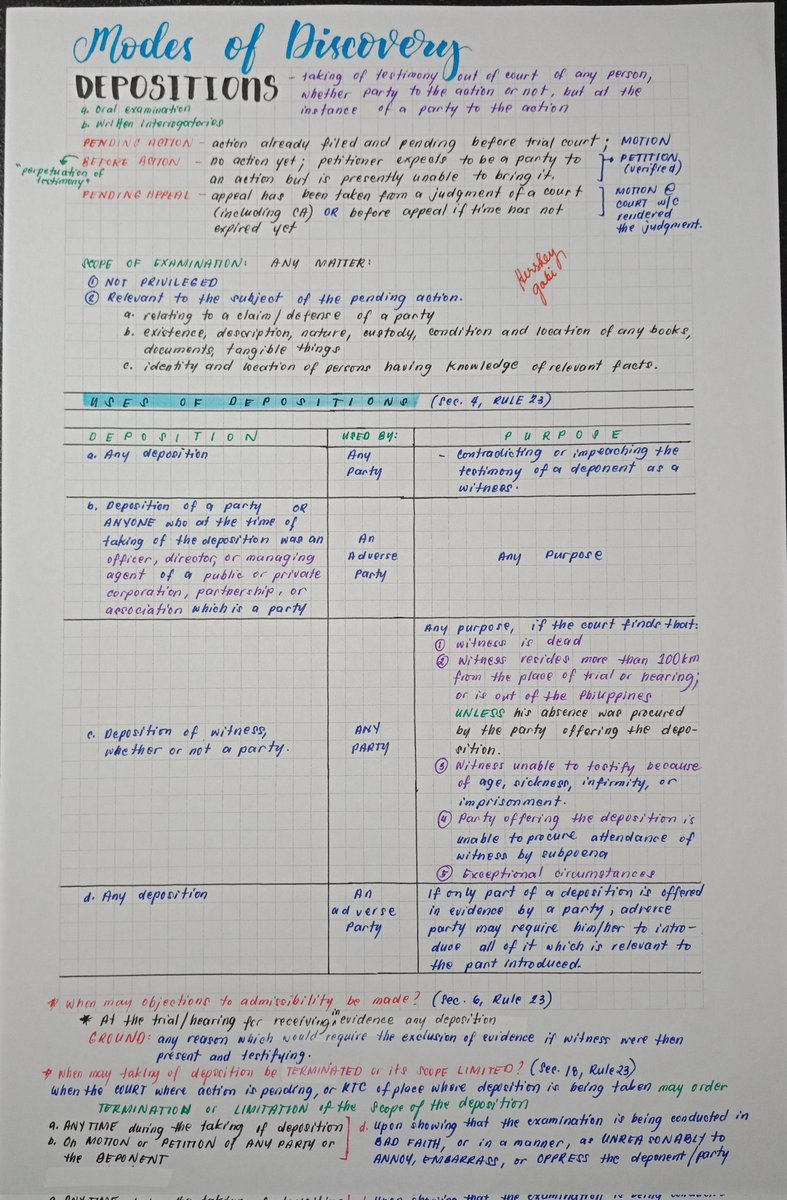 Modes of Discovery
DEPOSITIONS - taking of testimony out of court of any person,
whether party to the action or not, but at the
instance of a party to the action
a. Oral examination
b. Written Interrogatories
PENDING ACTION - action already filed and pending before trial court; MOTION
BEFORE ACTION - no action yet; petitioner expects to be a party to
an action but is presently unable to bring it.
PETITION
(verified)
"perpetuation of
testimony"
PENDING APPEAL - appeal has been taken from a judgment of a court
(including CA) OR before appeal if time has not
expired yet
MOTION @
COURT w/c
rendered
the judgment.
SCOPE OF EXAMINATION: ANY MATTER:
Hershey
gabi
① NOT PRIVILEGED
② Relevant to the subject of the pending action.
a. relating to a claim/defense of a party
b. existence, description, nature, custody, condition and location of any books,
documents, tangible things
c. identity and location of persons having knowledge of relevant facts.
USES OF DEPOSITIONS (Sec. 4, RULE 23)
DEPOSITION USED BY: PURPOSE
a. Any deposition
Any
Party
- Contradicting or impeaching the
testimony of a deponent as a
witness.
b. Deposition of a party OR
ANYONE who at the time of
taking of the deposition was an
officer, director, or managing
agent of a public or private
corporation, partnership, or
association which is a party
An
Adverse
Party
Any Purpose
c. Deposition of witness,
whether or not a party.
ANY
PARTY
Any purpose, if the court finds that:
① witness is dead
② Witness resides more than 100km
from the place of trial or hearing;
or is out of the Philippines
UNLESS his absence was procured
by the party offering the depo-
sition.
③ Witness unable to testify because
of age, sickness, infirmity, or
imprisonment.
④ Party offering the deposition is
unable to procure attendance of
witness by subpoena
⑤ Exceptional circumstances
d. Any deposition
An
adverse
Party
If only part of a deposition is offered
in evidence by a party, adverse
party may require him/her to intro-
duce all of it which is relevant to
the part introduced.
* When may objections to admissibility be made? (Sec. 6, Rule 23)
* At the trial/hearing for receiving in evidence any deposition
GROUND: any reason which would require the exclusion of evidence if witness were then
present and testifying.
* When may taking of deposition be TERMINATED or its SCOPE LIMITED? (Sec. 18, Rule 23)
When the COURT where action is pending, or RTC of place where deposition is being taken may order
TERMINATION or LIMITATION of the scope of the deposition
a. ANYTIME during the taking of deposition
b. On MOTION or PETITION OF ANY PARTY or
the DEPONENT
d. Upon showing that the examination is being conducted in
BAD FAITH, or in a manner, as UNREASONABLY to
ANNOY, EMBARRASS, or OPPRESS the deponent/party